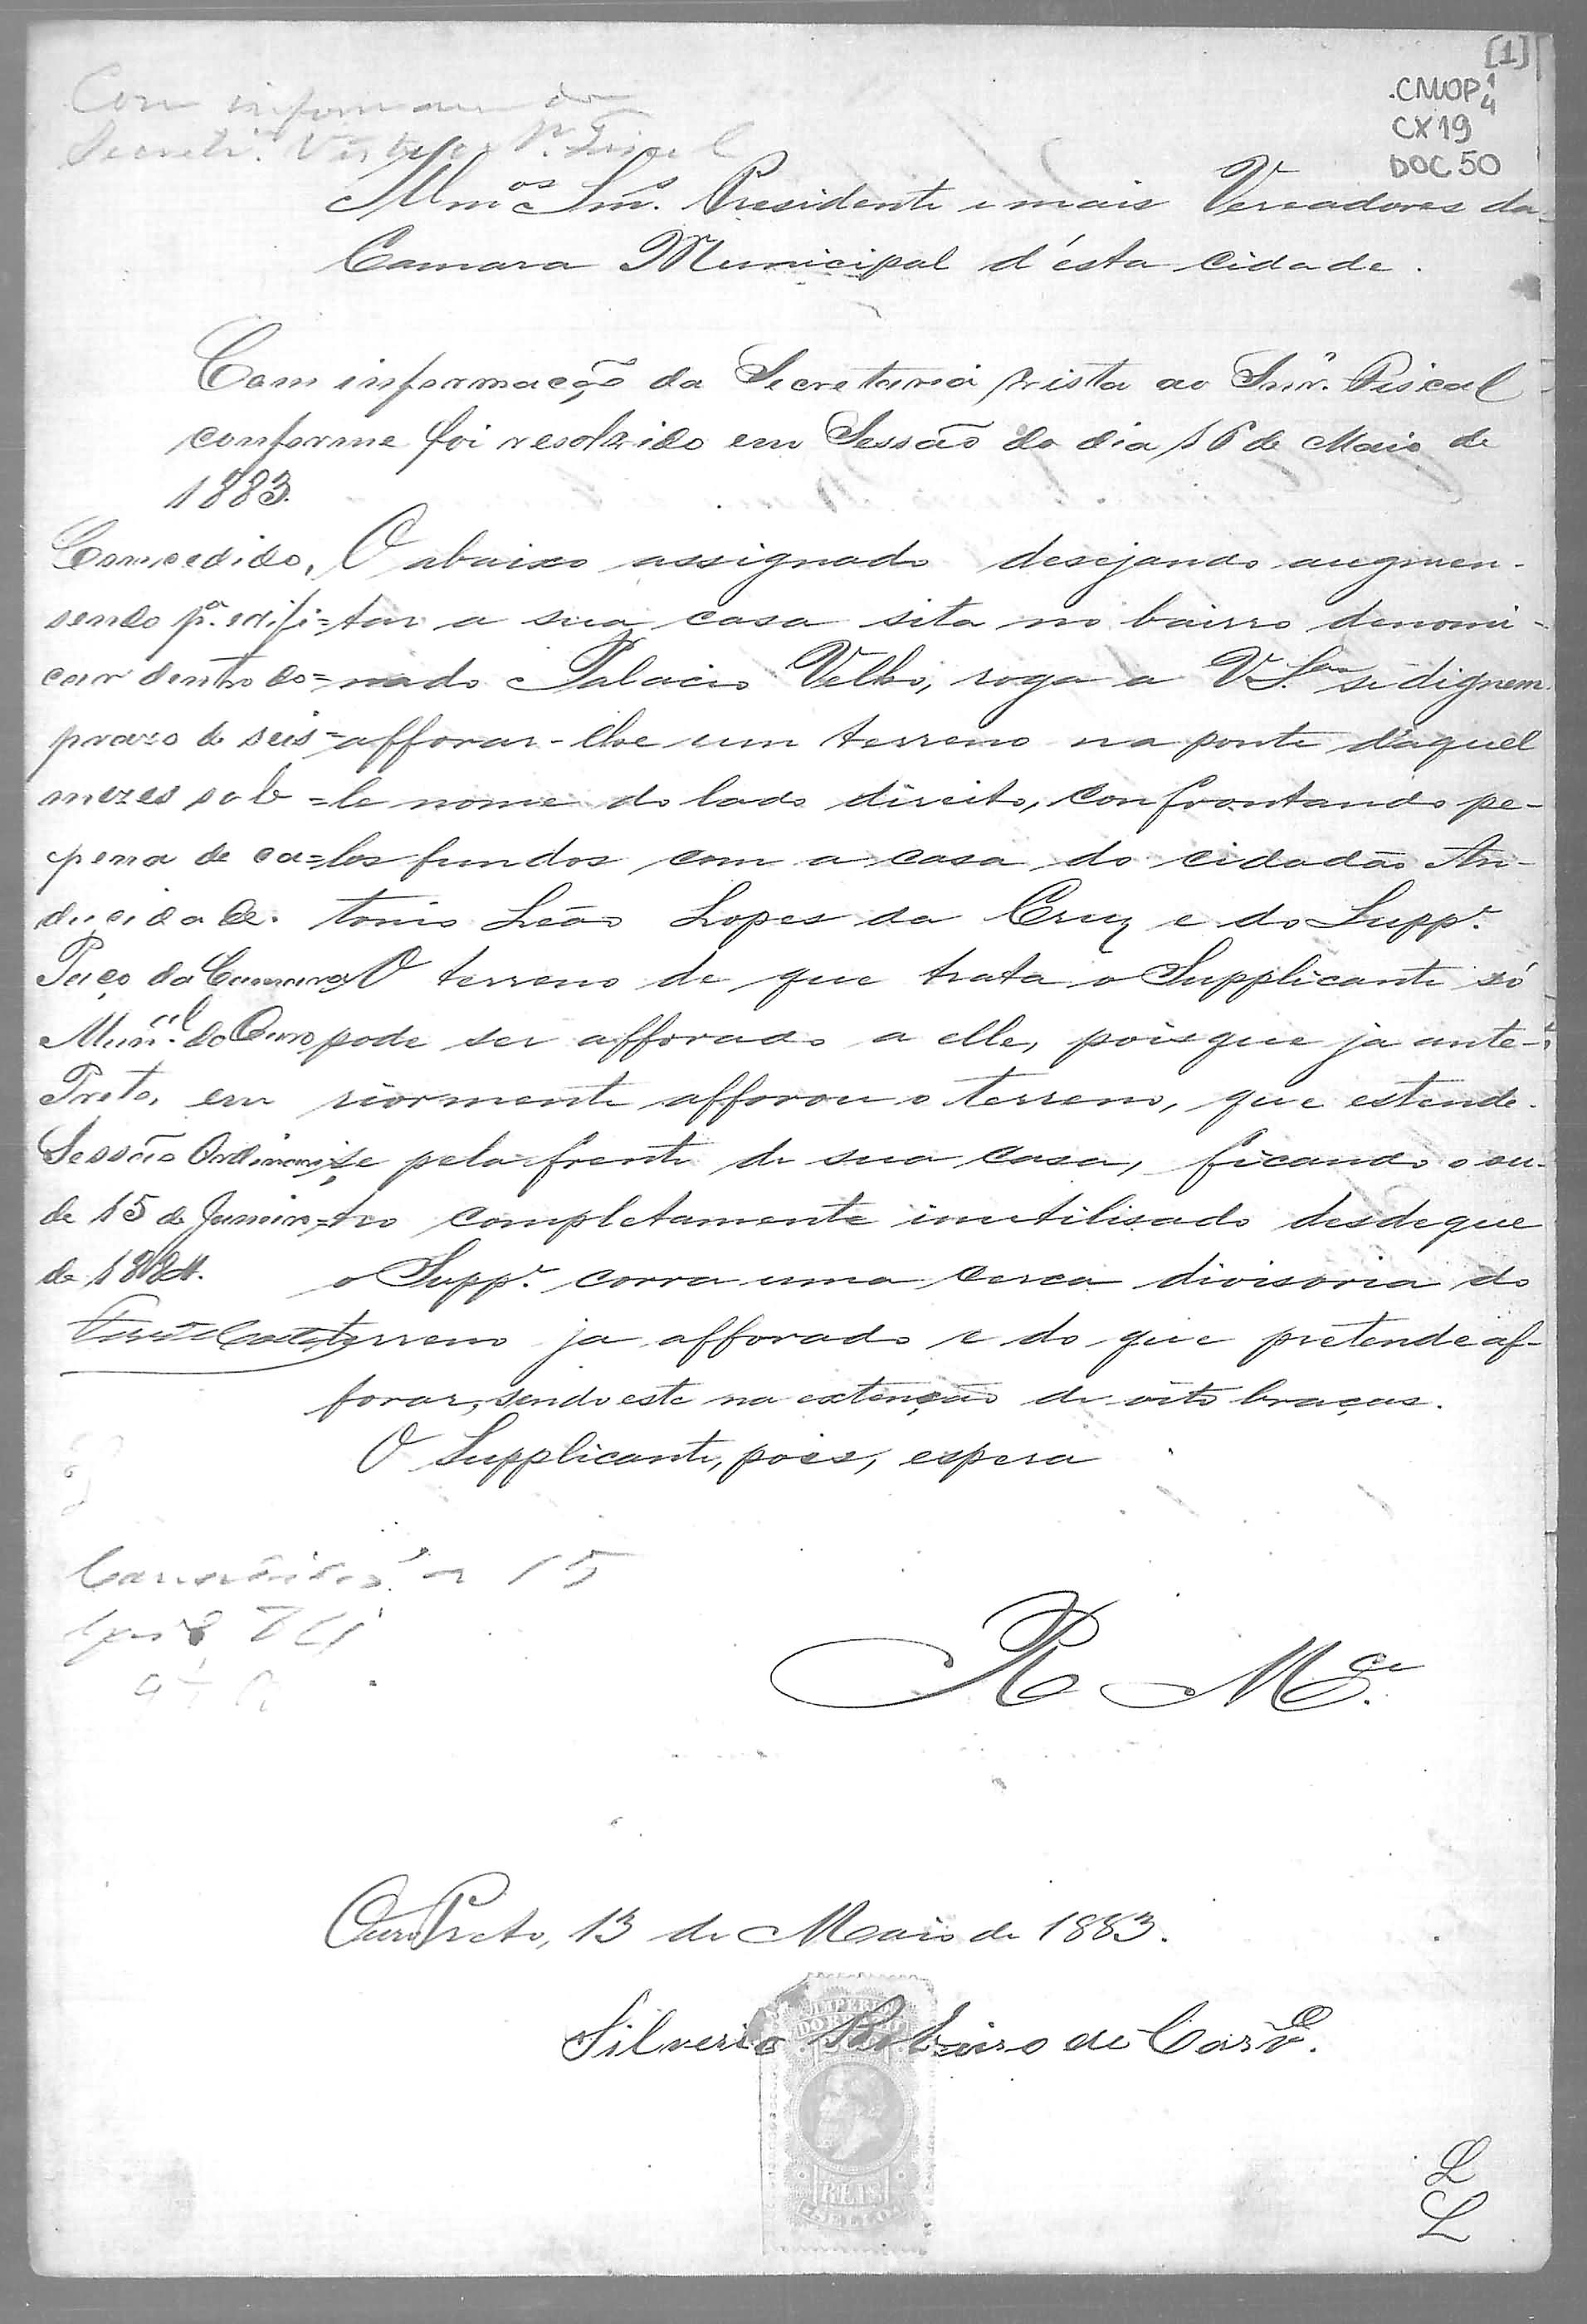 [1]
CMOP 1/4
CX19
DOC 50
Com informação da
Secretª. Vista ao Sr. Fiscal
Illmos Snrs. Presidente e mais Vereadores da
Camara Municipal d'ésta cidade.
Com informação da Secretaria vista ao Snr. Fiscal
conforme foi resolvido em Sessão do dia 16 de Maio de
1883.
Comcedido,
sendo pª. edifi=
car dentro do=
prazo de seis=
mezes sob=
pena de ca=
ducidade.
Paço da Camara
Muncal. do Ouro
Preto, em
Sessão Ordinaria
de 15 de Janeiro=
de 1884.
O abaixo assignado desejando augmen-
tar a sua casa sita no bairro denomi-
nado Palacio Velho, roga a V. Sas. se dignem
afforar-lhe um terreno na ponte d'aquel
le nome do lado direito, confrontando pe-
los fundos com a casa do cidadão An-
tonio Leão Lopes da Cruz e do Suppe.
O terreno de que trata o Supplicante só
pode ser afforado a elle, pois que ja ante-
riormente afforou o terreno, que estende-
se pela frente de sua casa, ficando o ou-
tro completamente inutilisado desde que
o Suppe. corra uma cerca divisoria do
terreno ja afforado e do que pretende af-
forar, sendo este na extenção de oito braças.
O Supplicante, pois, espera
15
R. Mce.
Ouro Preto, 13 de Maio de 1883.
Silverio Ribeiro de Carvo.
IMPERIO
DO BRAZIL
REIS
SELLO